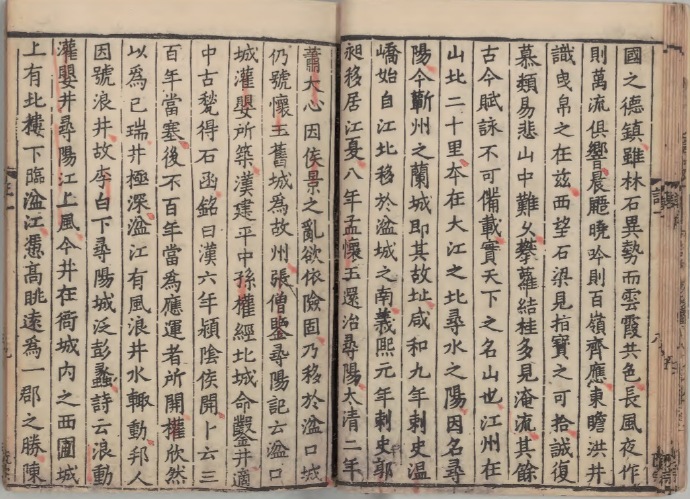 國之德鎮雖林石異勢而雲霞共色長風夜作
則萬流俱響晨鼯曉吟則百嶺齊應東瞻洪井
識曳帛之在茲西望石梁見指寶之可拾誠復
慕類易悲山中難久攀蘿結桂多見淹流其餘
古今賦詠不可備載實天下之名山也江州在
山北二十里本在大江之北尋水之陽因名尋
陽今蘄州之蘭城即其故址咸和九年刺史温
嶠始自江北移於湓城之南義熙元年刺史郭
昶移居江夏八年孟懷玉還治尋陽太清二年
蕭大心因侯景之亂欲依險固乃移於湓口城
仍號懷玉舊城為故州張僧鑒尋陽記云湓口
城灌嬰所築漢建平中孫權經北城命鑿井適
中古甃得石函銘曰漢六年潁陰侯開卜云三
百年當塞後不百年當為應運者所開權欣然
以為已瑞井極深湓江有風浪井水輙動邦人
因號浪井故李白下尋陽城泛彭蠡詩云浪動
灌嬰井尋陽江上風今井在衙城内之西圃城
上有北樓下臨湓江憑高眺遠為一郡之勝陳